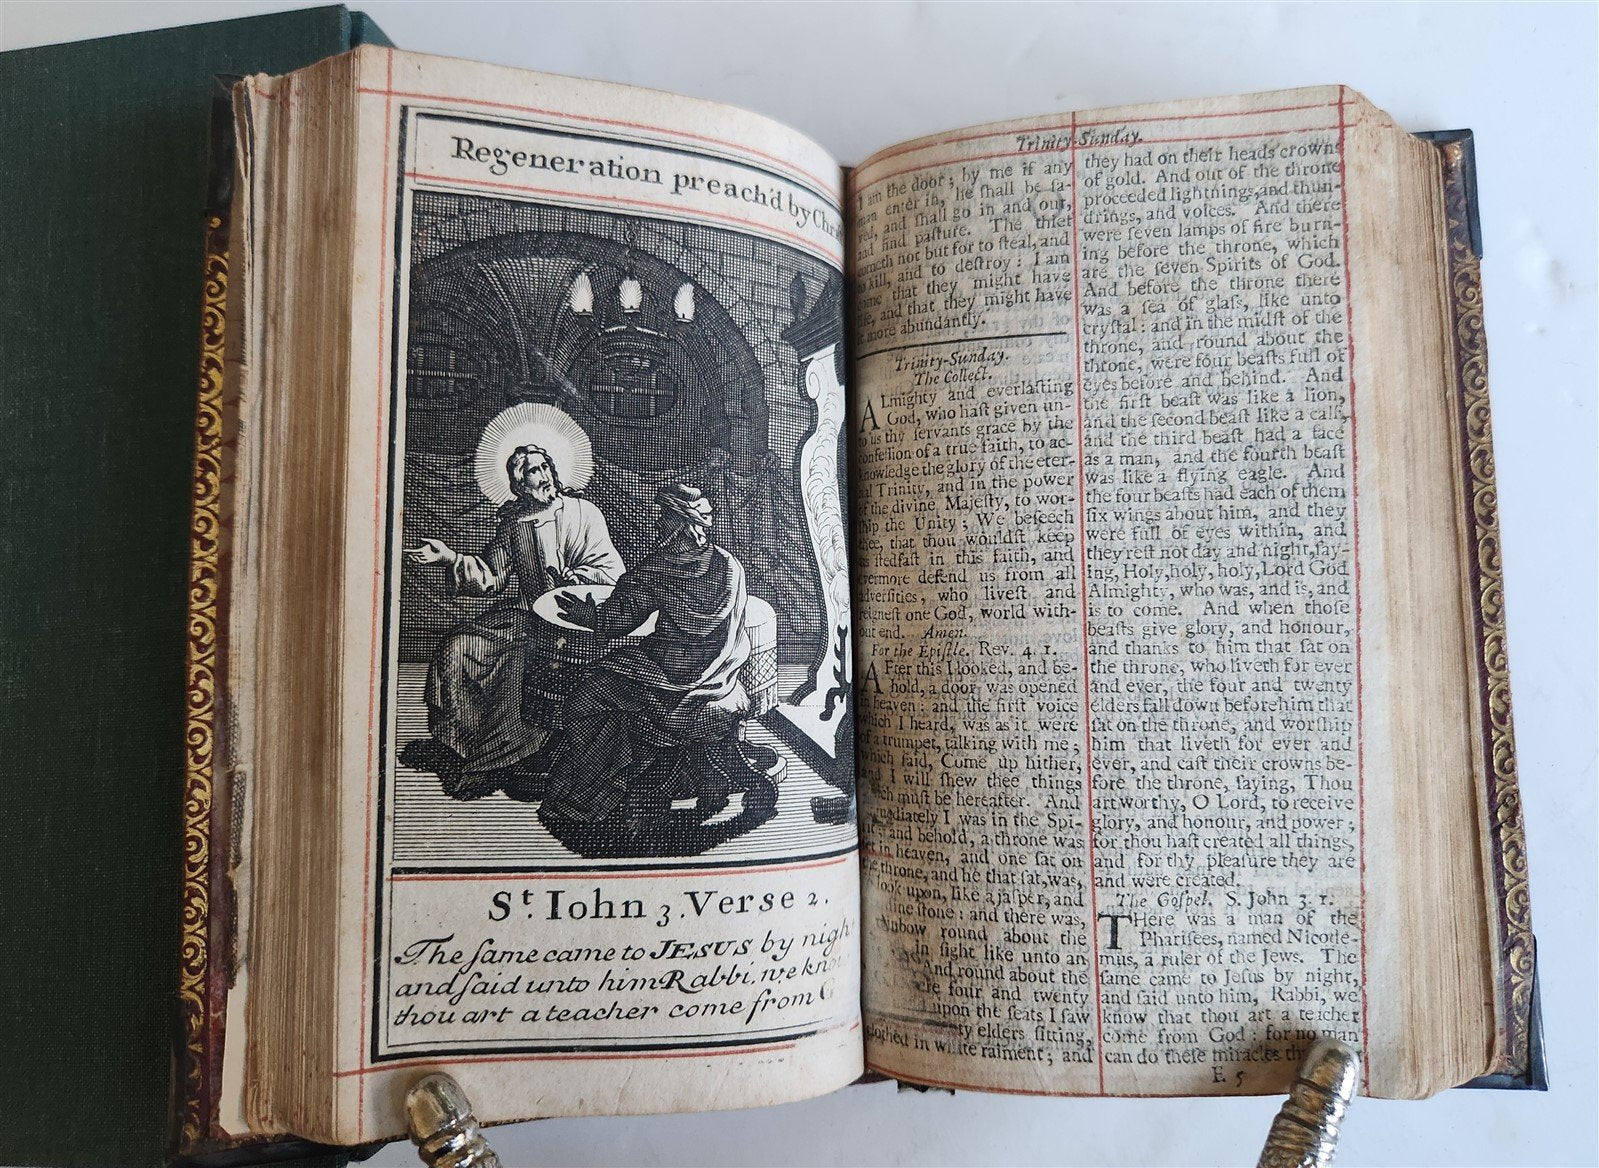 Regeneration preach'd by Chr
St. Iohn 3. Verse 2.
The ſame came to JESUS by nigh
and ſaid unto him Rabbi, we kno
thou art a teacher come from G
Trinity-Sunday.
I am the door; by me if any
man enter in, he ſhall be ſa-
ved, and ſhall go in and out,
and find paſture. The thief
cometh not but for to ſteal, and
to kill, and to deſtroy: I am
come that they might have
life, and that they might have
it more abundantly.
Trinity-Sunday.
The Collect.
ALmighty and everlaſting
God, who haſt given un-
to us thy ſervants grace by the
confeſſion of a true faith, to ac-
knowledge the glory of the eter-
nal Trinity, and in the power
of the divine Majeſty, to wor-
ſhip the Unity; We beſeech
thee, that thou wouldſt keep
us ſtedfaſt in this faith, and
evermore defend us from all
adverſities, who liveſt and
reigneſt one God, world with-
out end. Amen.
For the Epiſtle. Rev. 4. 1.
AFter this I looked, and be-
hold, a door was opened
in heaven: and the firſt voice
which I heard, was as it were
of a trumpet, talking with me;
which ſaid, Come up hither,
and I will ſhew thee things
which muſt be hereafter. And
mediately I was in the Spi-
and behold, a throne was
ſet in heaven, and one ſat on
the throne, and he that ſat, was,
look upon, like a jaſper, and
dine ſtone: and there was,
inbow round about the
in ſight like unto an
And round about the
four and twenty
upon the ſeats I ſaw
ty elders ſitting,
clothed in white raiment; and
they had on their heads crowns
of gold. And out of the throne
proceeded lightnings, and thun-
drings, and voices. And there
were ſeven lamps of fire burn-
ing before the throne, which
are the ſeven Spirits of God.
And before the throne there
was a ſea of glaſs, like unto
cryſtal: and in the midſt of the
throne, and round about the
throne, were four beaſts full of
eyes before and behind. And
the firſt beaſt was like a lion,
and the ſecond beaſt like a calf,
and the third beaſt had a face
as a man, and the fourth beaſt
was like a flying eagle. And
the four beaſts had each of them
ſix wings about him, and they
were full of eyes within, and
they reſt not day and night, ſay-
ing, Holy, holy, holy, Lord God
Almighty, who was, and is, and
is to come. And when thoſe
beaſts give glory, and honour,
and thanks to him that ſat on
the throne, who liveth for ever
and ever, the four and twenty
elders fall down before him that
ſat on the throne, and worſhip
him that liveth for ever and
ever, and caſt their crowns be-
fore the throne, ſaying, Thou
art worthy, O Lord, to receive
glory, and honour, and power;
for thou haſt created all things,
and for thy pleaſure they are
and were created.
The Goſpel. S. John 3. 1.
THere was a man of the
Phariſees, named Nicode-
mus, a ruler of the Jews. The
ſame came to Jeſus by night,
and ſaid unto him, Rabbi, we
know that thou art a teacher
come from God: for no man
can do theſe miracles th
E 5